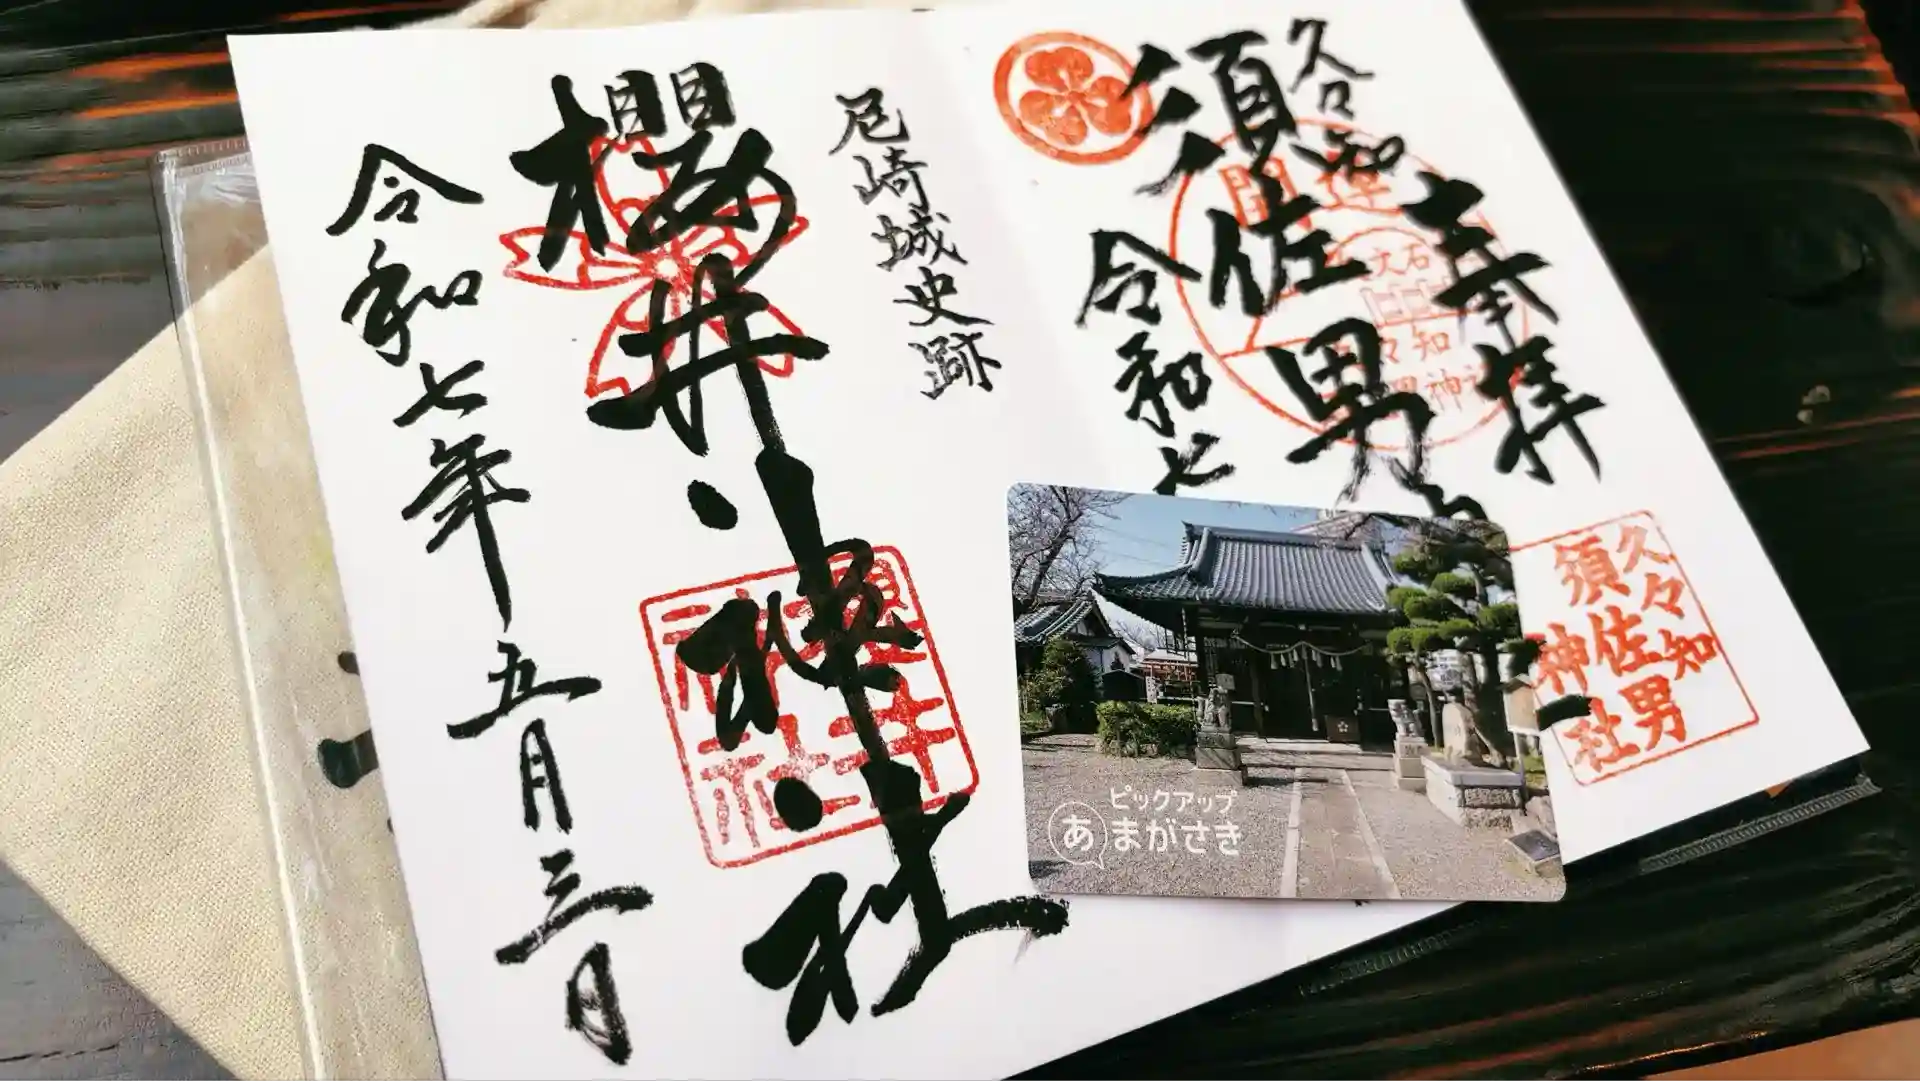 奉拝
久々知
須佐男
令和七
開運
文石
々知
男神社
久々知
須佐男
神社
尼崎城史跡
櫻井神社
櫻井
神社
令和七年五月三日
ピックアップ
あまがさき